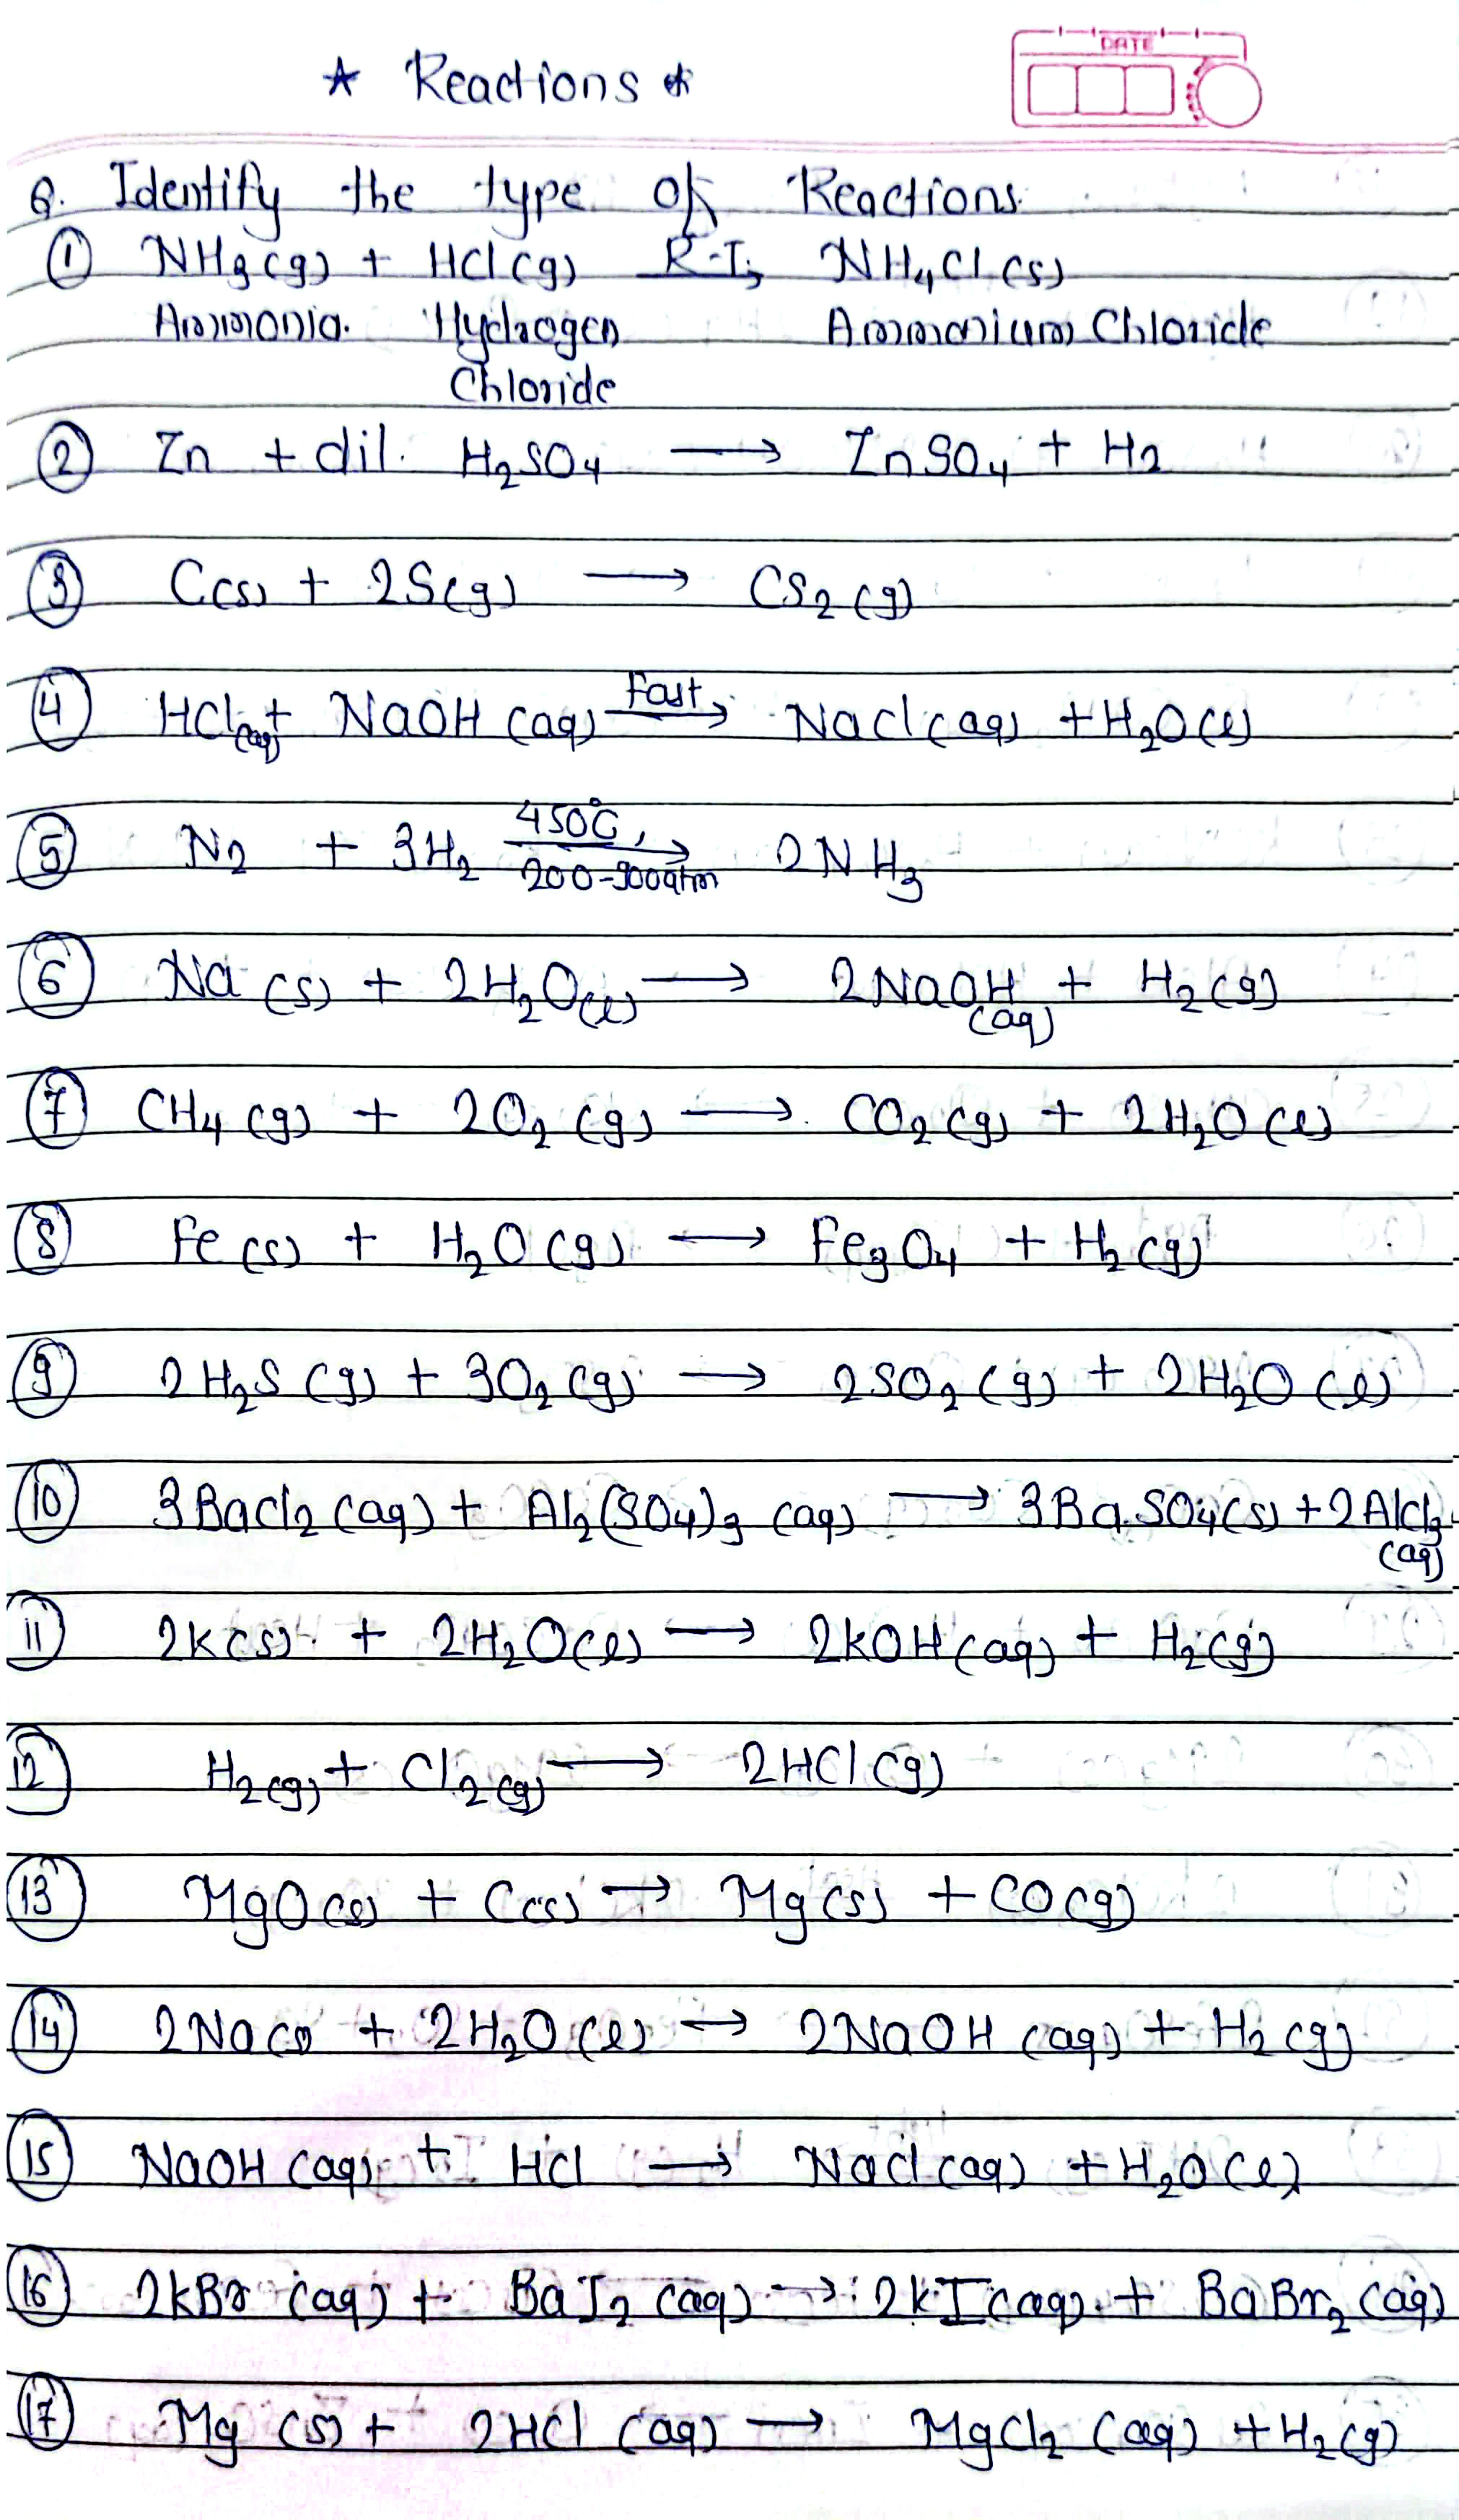 ★ Reactions ★
DATE
Q. Identify the type of Reactions.
① NH3(g) + HCl(g) R.T→ NH4Cl(s)
Ammonia. Hydrogen Ammonium Chloride
Chloride
② Zn + dil. H2SO4 → ZnSO4 + H2
③ C(s) + 2S(g) → CS2(g)
④ HCl(aq) + NaOH (aq) Fast→ NaCl(aq) + H2O(l)
⑤ N2 + 3H2 450°C, 200-900atm → 2NH3
⑥ Na (s) + 2H2O(l) → 2NaOH (aq) + H2(g)
⑦ CH4(g) + 2O2(g) → CO2(g) + 2H2O(l)
⑧ Fe(s) + H2O(g) → Fe3O4 + H2(g)
⑨ 2H2S(g) + 3O2(g) → 2SO2(g) + 2H2O(l)
⑩ 3BaCl2(aq) + Al2(SO4)3 (aq) → 3BaSO4(s) + 2AlCl3 (aq)
⑪ 2K(s) + 2H2O(l) → 2KOH(aq) + H2(g)
⑫ H2(g) + Cl2(g) → 2HCl(g)
⑬ MgO(s) + C(s) → Mg(s) + CO(g)
⑭ 2Na(s) + 2H2O(l) → 2NaOH (aq) + H2(g)
⑮ NaOH(aq) + HCl → NaCl(aq) + H2O(l)
⑯ 2KBr (aq) + BaI2(aq) → 2KI(aq) + BaBr2(aq)
⑰ Mg (s) + 2HCl (aq) → MgCl2 (aq) + H2(g)